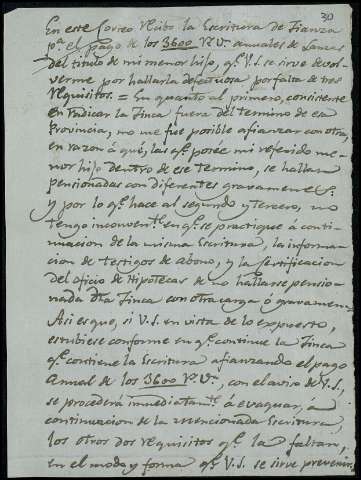 30
En este Correo recibo la Escritura de Fianza
pa. el pago de los 3600 Rs. Vn. anuales de Lanzas
del titulo de mi menor hijo, qe. V.S. se sirve devol-
verme por hallarla defectuosa por falta de tres
requisitos. = En quanto al primero, consistente
en radicar la Finca fuera del termino de esa
Provincia, no me fue posible afianzar con otra,
en razon á qué, las qe. posée mi referido me-
nor hijo dentro de ese termino, se hallan
pensionadas con diferentes gravamenes.
y por lo qe. hace al segundo y tercero, no
tengo inconvente. en qe. se practique á conti-
nuacion de la misma Escritura, la informa-
cion de testigos de abono, y la Certificacion
del oficio de Hipotecas de no hallarse pensio-
nada dha Finca con otra carga ó gravamen.
Asi es que, si V.S. en vista de lo expuesto,
estubiese conforme en qe. continue la Finca
qe. contiene la Escritura afianzando el pago
annual de los 3600 Rs. Vn., con el aviso de V.S.,
se procederá inmediatamte. á evaquar, á
continuacion de la mencionada Escritura,
los otros dos requisitos qe. la faltan,
en el modo y forma qe. V.S. se sirve prevenir